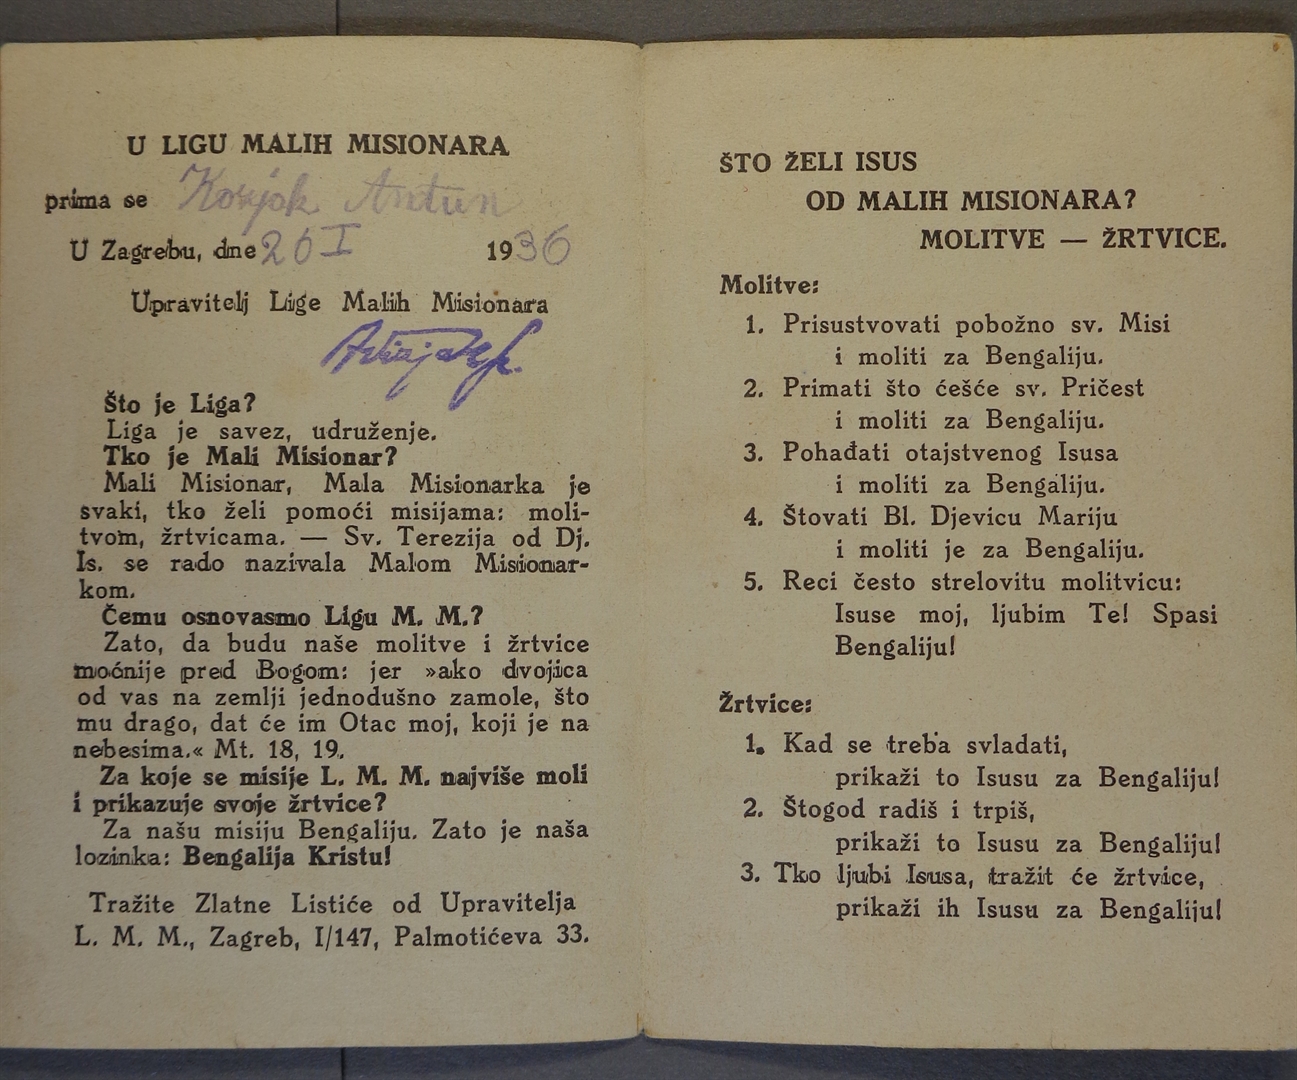 U LIGU MALIH MISIONARA
prima se Korjak Antun
U Zagrebu, dne 26 I 1936
Upravitelj Lige Malih Misionara
Što je Liga?
Liga je savez, udruženje.
Tko je Mali Misionar?
Mali Misionar, Mala Misionarka je
svaki, tko želi pomoći misijama: moli-
tvom, žrtvicama. — Sv. Terezija od Dj.
Is. se rado nazivala Malom Misionar-
kom.
Čemu osnovasmo Ligu M. M.?
Zato, da budu naše molitve i žrtvice
moćnije pred Bogom: jer »ako dvojica
od vas na zemlji jednodušno zamole, što
mu drago, dat će im Otac moj, koji je na
nebesima.« Mt. 18, 19.
Za koje se misije L. M. M. najviše moli
i prikazuje svoje žrtvice?
Za našu misiju Bengaliju. Zato je naša
lozinka: Bengalija Kristu!
Tražite Zlatne Listiće od Upravitelja
L. M. M., Zagreb, I/147, Palmotićeva 33.
ŠTO ŽELI ISUS
OD MALIH MISIONARA?
MOLITVE — ŽRTVICE.
Molitve:
1. Prisustvovati pobožno sv. Misi
i moliti za Bengaliju.
2. Primati što ćešće sv. Pričest
i moliti za Bengaliju.
3. Pohađati otajstvenog Isusa
i moliti za Bengaliju.
4. Štovati Bl. Djevicu Mariju
i moliti je za Bengaliju.
5. Reci često strelovitu molitvicu:
Isuse moj, ljubim Te! Spasi
Bengaliju!
Žrtvice:
1. Kad se treba svladati,
prikaži to Isusu za Bengaliju!
2. Štogod radiš i trpiš,
prikaži to Isusu za Bengaliju!
3. Tko ljubi Isusa, tražit će žrtvice,
prikaži ih Isusu za Bengaliju!